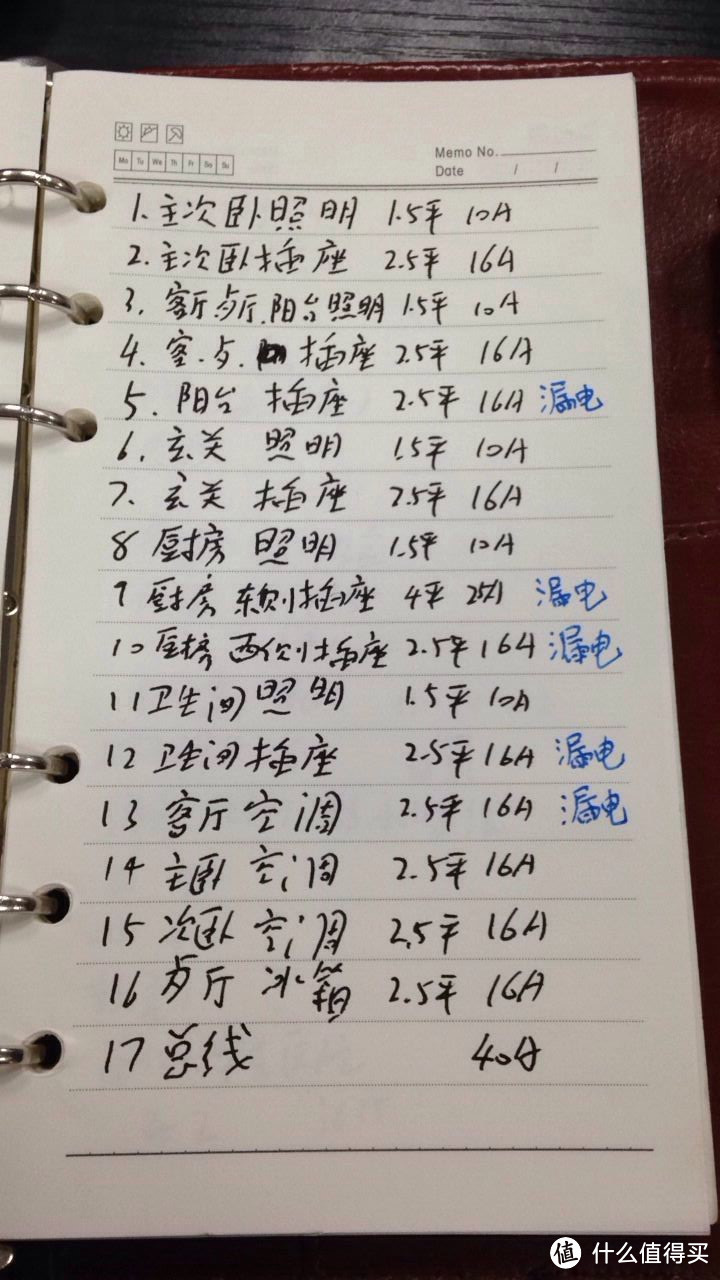 Mo Tu We Th Fr Sa Su
Memo No.
Date / /
1. 主次卧照明 1.5平 10A
2. 主次卧插座 2.5平 16A
3. 客厅歺厅.阳台照明 1.5平 10A
4. 客.歺. 插座 2.5平 16A
5. 阳台 插座 2.5平 16A 漏电
6. 玄关 照明 1.5平 10A
7. 玄关 插座 2.5平 16A
8 厨房 照明 1.5平 10A
9 厨房 东侧插座 4平 25A 漏电
10 厨房 西侧插座 2.5平 16A 漏电
11 卫生间照明 1.5平 10A
12 卫生间插座 2.5平 16A 漏电
13 客厅空调 2.5平 16A 漏电
14 主卧 空调 2.5平 16A
15 次卧 空调 2.5平 16A
16 歺厅 冰箱 2.5平 16A
17 总线 40A
值 什么值得买